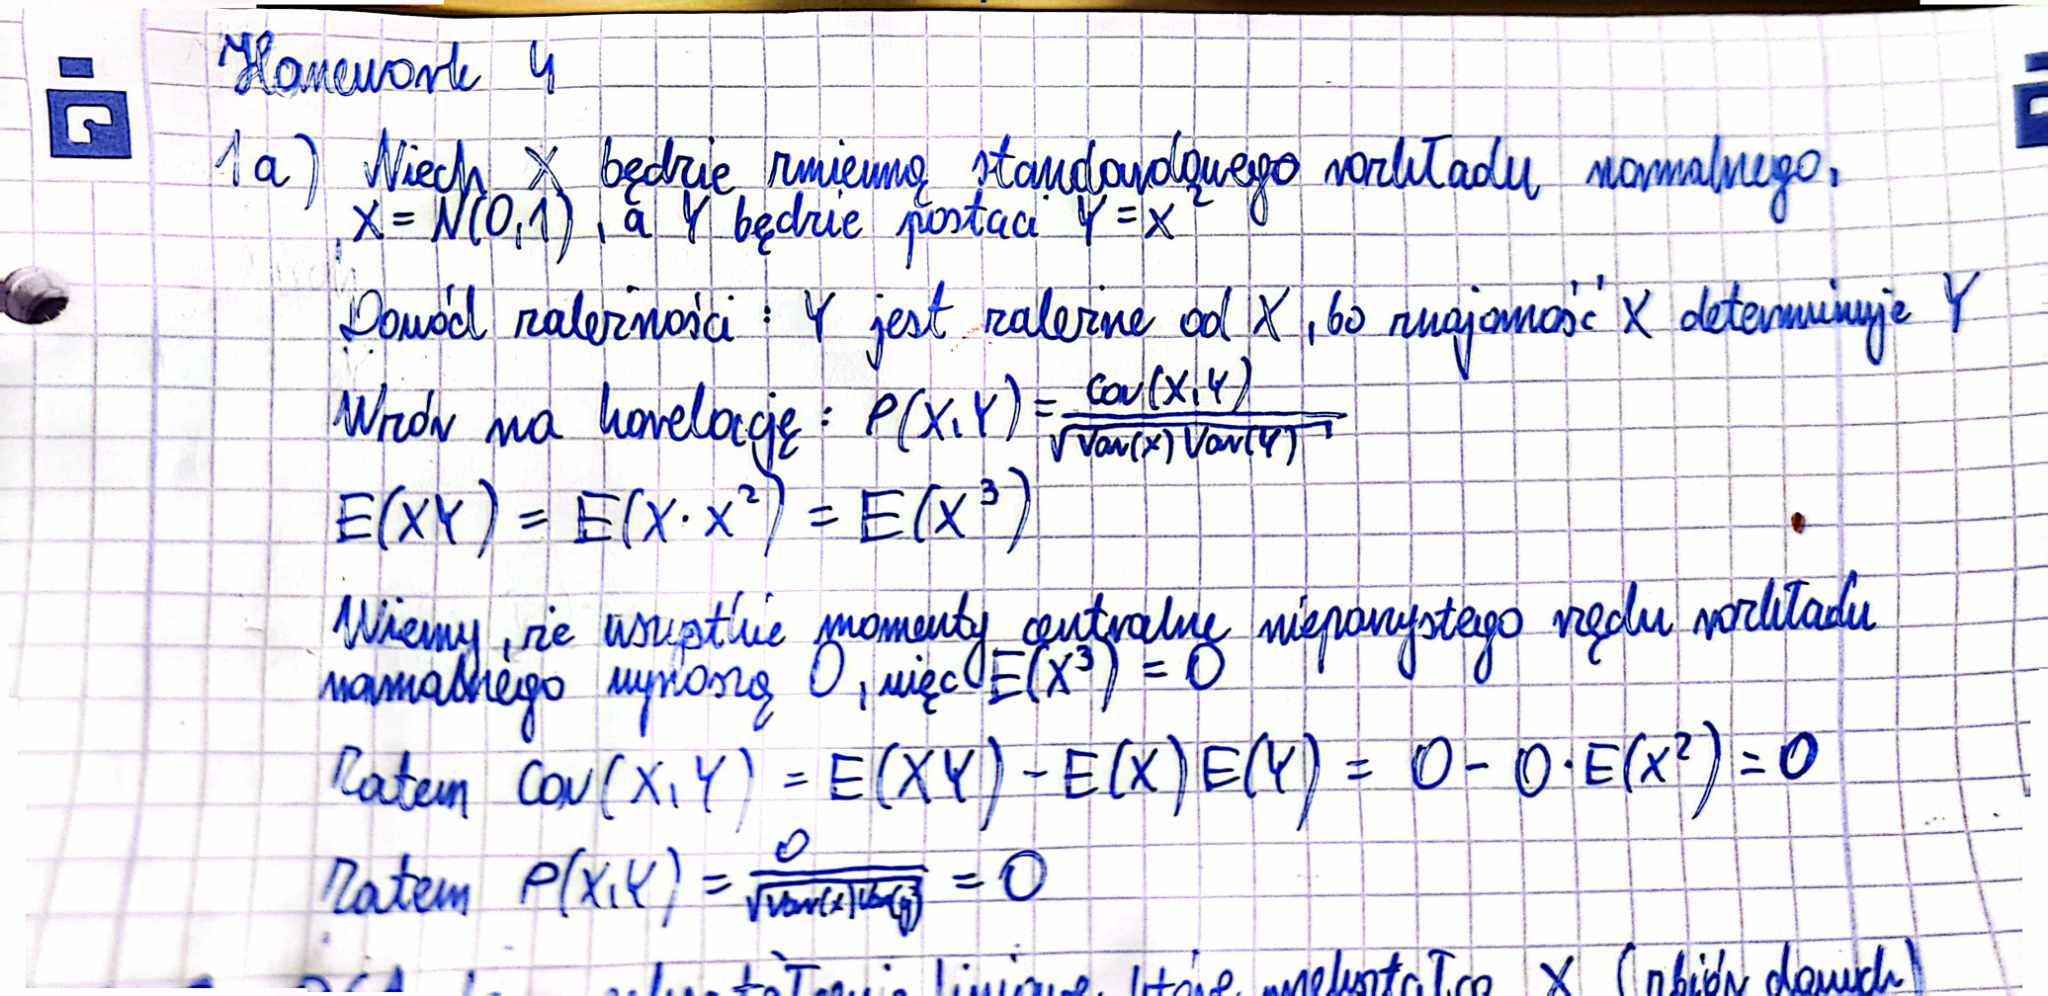 Homework 4
1a) Niech X będzie zmienną standardowego rozkładu normalnego,
X = N(0,1), a Y będzie postaci Y = X²
Dowód zależności : Y jest zależne od X, bo znajomość X determinuje Y
Wzór na korelację : ρ(X,Y) = Cov(X,Y) / √Var(X) Var(Y)
E(XY) = E(X·X²) = E(X³)
Wiemy, że wszystkie momenty centralne nieparzystego rzędu rozkładu
normalnego wynoszą 0, więc E(X³) = 0
Zatem Cov(X,Y) = E(XY) - E(X)E(Y) = 0 - 0·E(X²) = 0
Zatem ρ(X,Y) = 0 / √Var(X)Var(Y) = 0
liniowe, które X (zbiór danych)